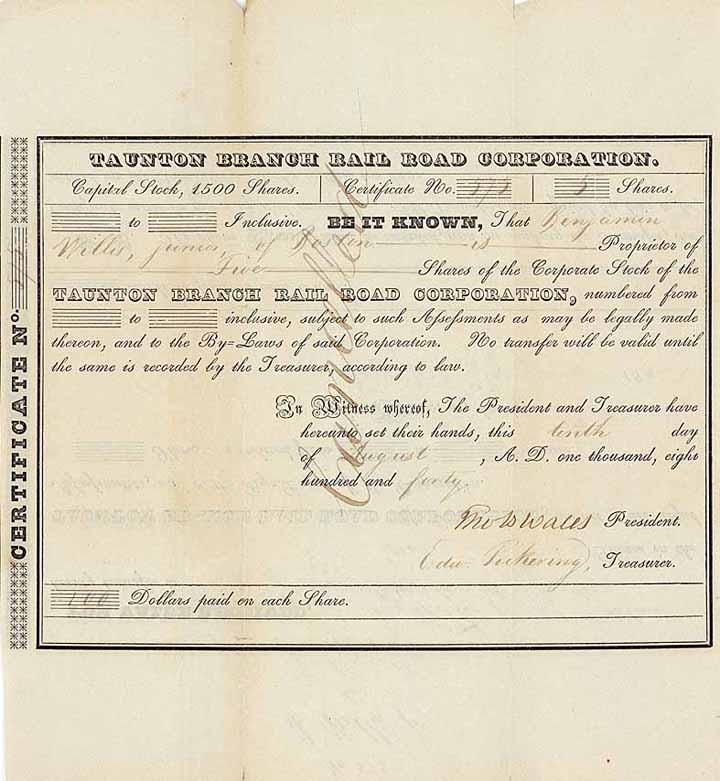 TAUNTON BRANCH RAIL ROAD CORPORATION.
Capital Stock, 1500 Shares. Certificate No. 5 Shares.
to Inclusive. BE IT KNOWN, That Benjamin
Willis, junior, of Boston is Proprietor of
Five Shares of the Corporate Stock of the
TAUNTON BRANCH RAIL ROAD CORPORATION, numbered from
to inclusive, subject to such Assessments as may be legally made
thereon, and to the By=Laws of said Corporation. No transfer will be valid until
the same is recorded by the Treasurer, according to law.
In Witness whereof, The President and Treasurer have
hereunto set their hands, this tenth day
of August, A. D. one thousand, eight
hundred and forty
Thos B Wales President.
Edw. Pickering, Treasurer.
100 Dollars paid on each Share.
CERTIFICATE No.
Cancelled